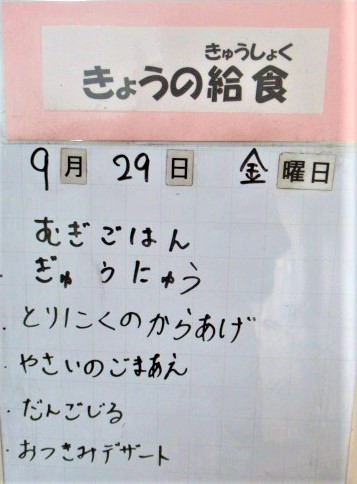 きゅうしょく
きょうの給食
9月 29日 金曜日
むぎごはん
ぎゅうにゅう
とりにくのからあげ
やさいのごまあえ
だんごじる
おつきみデザート